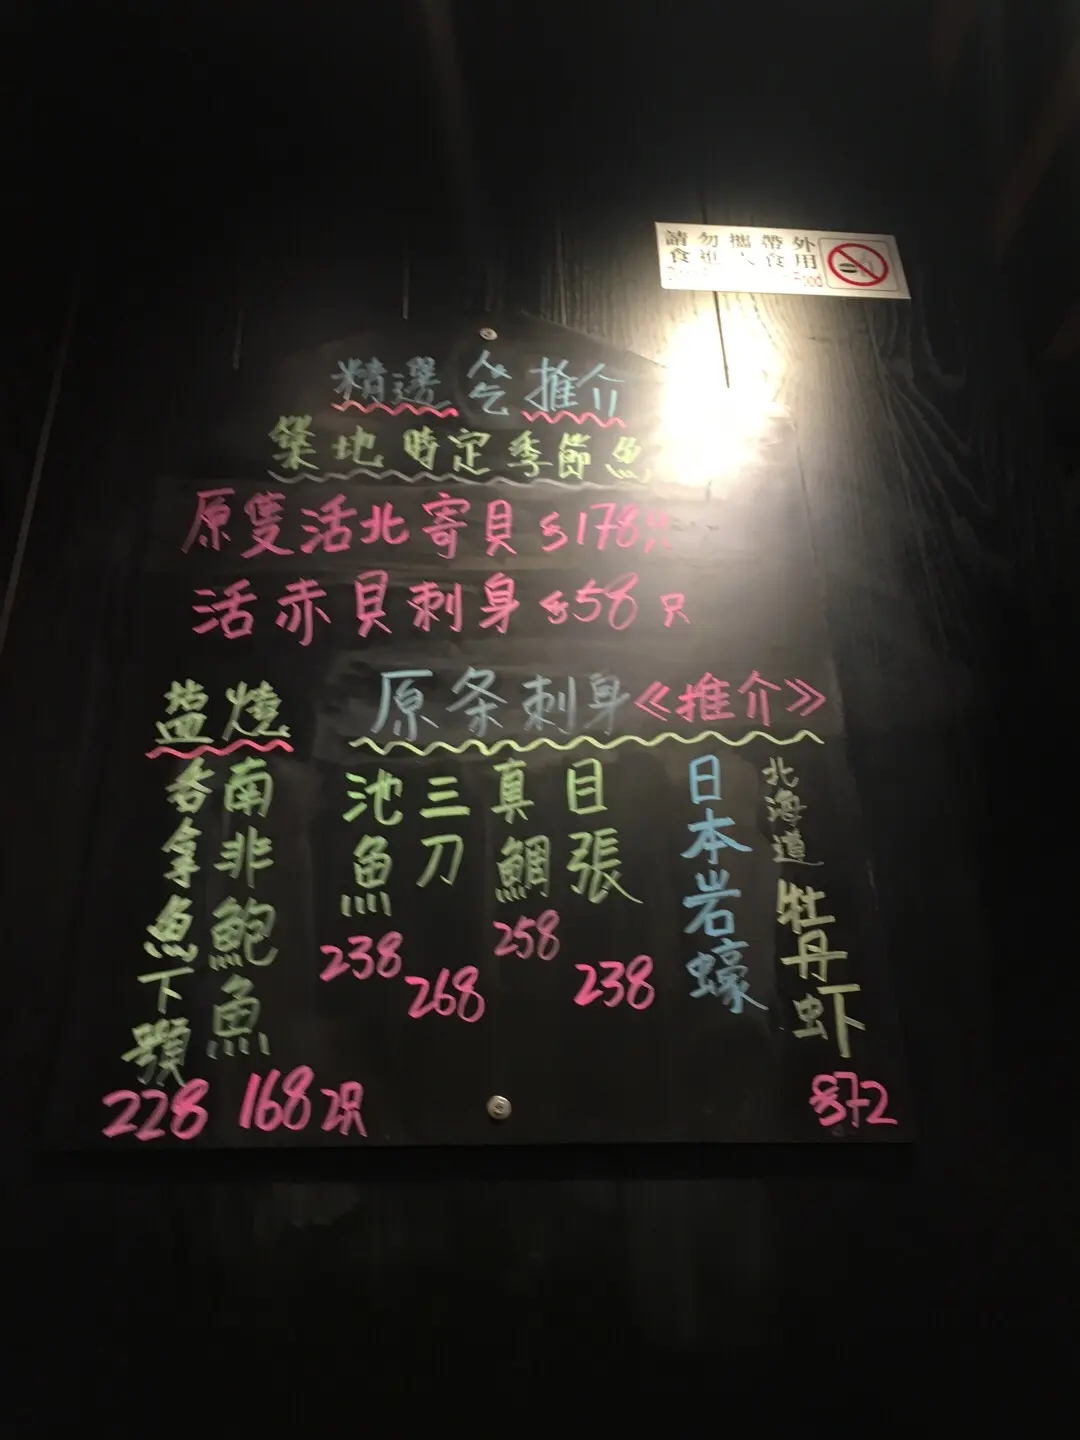 請勿攜帶外
食進入食用
Food
精選 推介
築地時定季節魚
原隻活北寄貝 $178只
活赤貝刺身 $58只
塩燒
原条刺身《推介》
南非鮑魚
168 2只
香拿魚下顎
228
池魚
238
三刀
268
真鯛
258
目張
238
日本岩蠔
北海道牡丹虾
$72